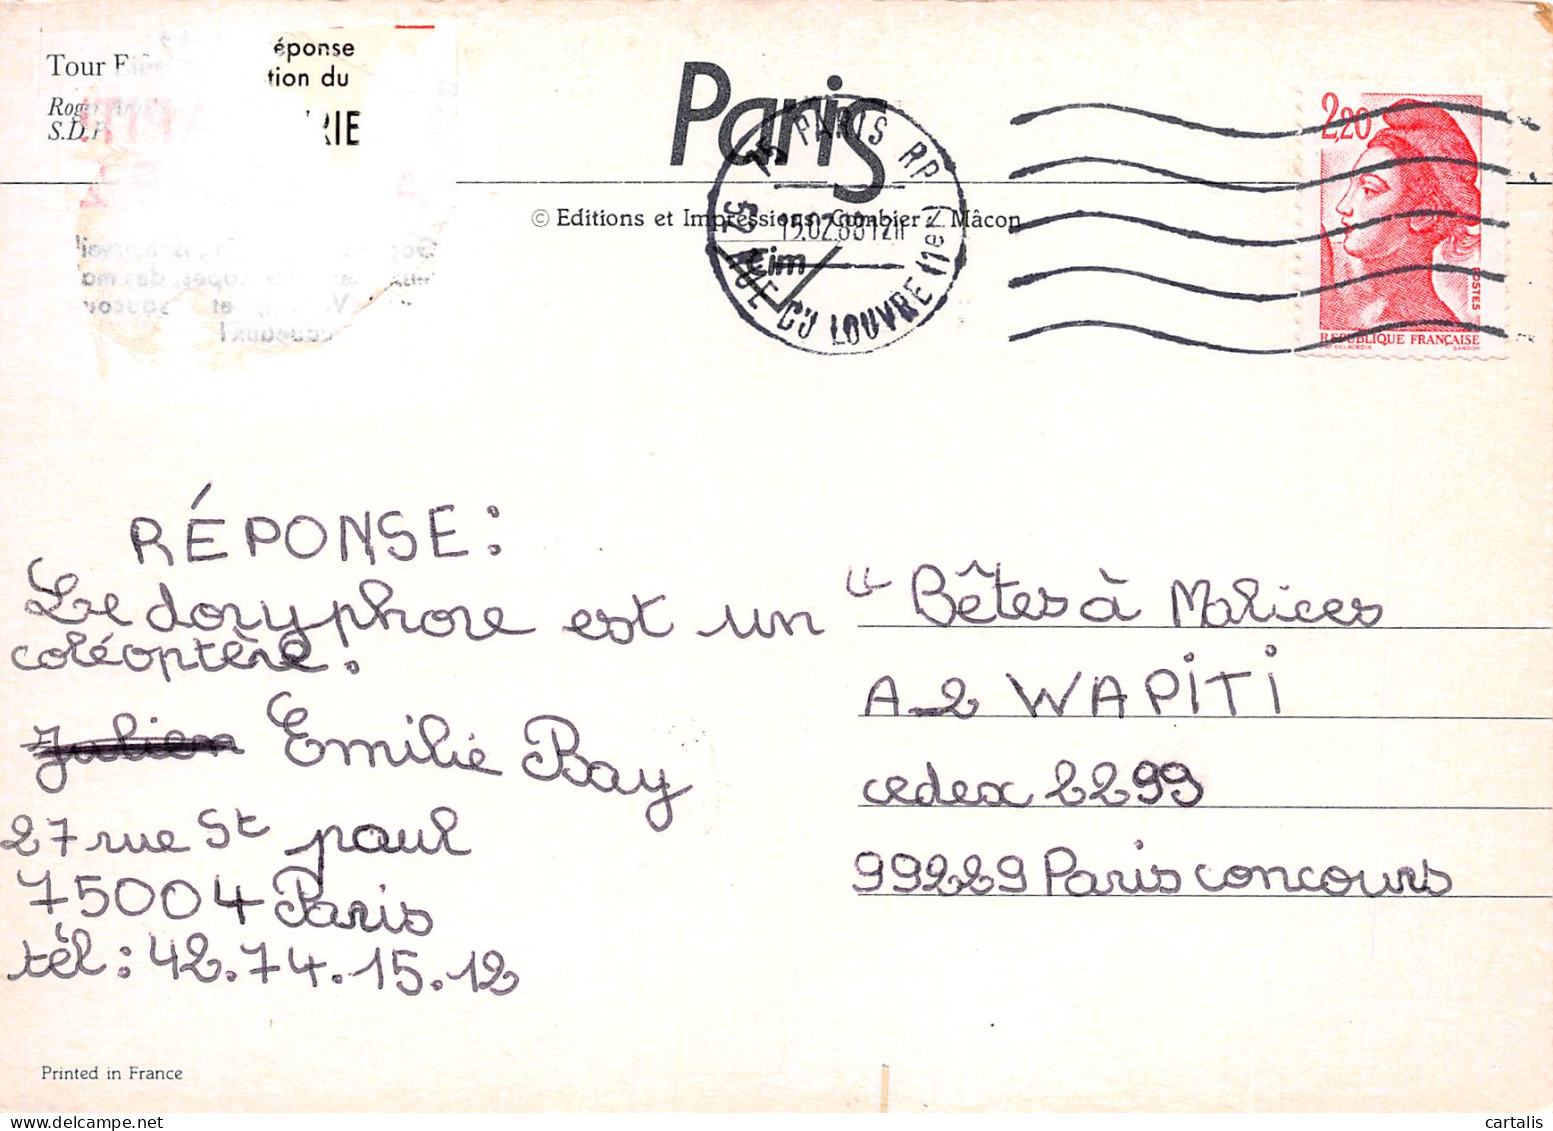 Tour
éponse
tion du
RIE
S.D.P.
Paris
© Editions et Impressions Combier / Mâcon
Cim
75 PARIS RP
15.02.88 12H
52 RUE DU LOUVRE (1er)
2,20
POSTES
REPUBLIQUE FRANÇAISE
RÉPONSE :
Le doryphore est un
coléoptère.
Julien Emilie Bay
27 rue St paul
75004 Paris
tél : 42.74.15.12
"Bêtes à Malices
A2 WAPITI
cedex 2299
99229 Paris concours
Printed in France
cartalis